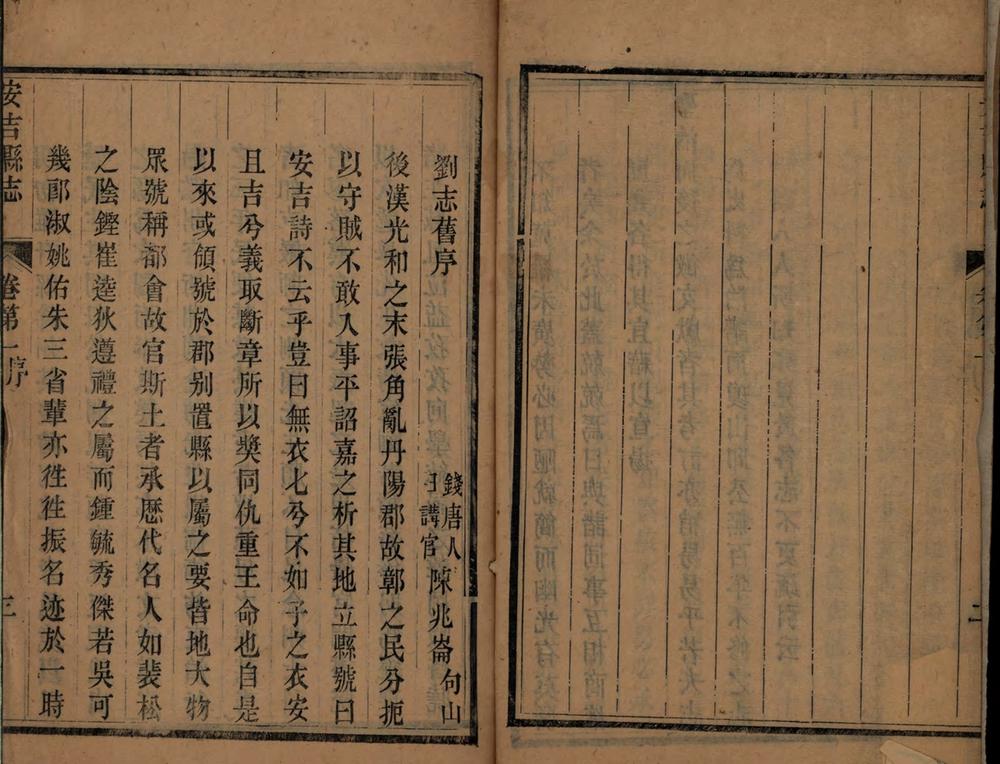 二
劉志舊序
錢唐人
日講官
陳兆崙 句山
後漢光和之末張角亂丹陽郡故鄣之民分扼
以守賊不敢入事平詔嘉之析其地立縣號曰
安吉詩不云乎豈曰無衣七兮不如子之衣安
且吉兮義取斷章所以奬同仇重王命也自是
以來或領號於郡别置縣以屬之要皆地大物
眾號稱都會故官斯土者承歷代名人如裴松
之陰鏗崔逵狄遵禮之屬而鍾毓秀傑若吳可
幾郎淑姚佑朱三省輩亦徃徃振名迹於一時
安吉縣志
卷第一序
三